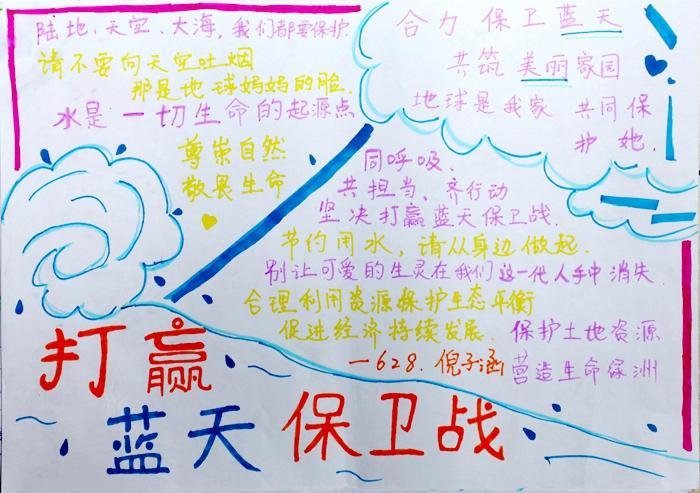 陆地、天空、大海，我们都要保护.
请不要向天空吐烟
那是地球妈妈的脸.
水是一切生命的起源点
尊崇自然
敬畏生命
合力 保卫蓝天
共筑 美丽家园
地球是我家 共同保
护她.
同呼吸、
共担当、齐行动
坚决打赢蓝天保卫战.
节约用水，请从身边做起.
别让可爱的生灵在我们这一代人手中消失.
合理利用资源保护生态平衡
促进经济持续发展.
保护土地资源
营造生命绿洲
一628. 倪子涵
打赢
蓝天保卫战